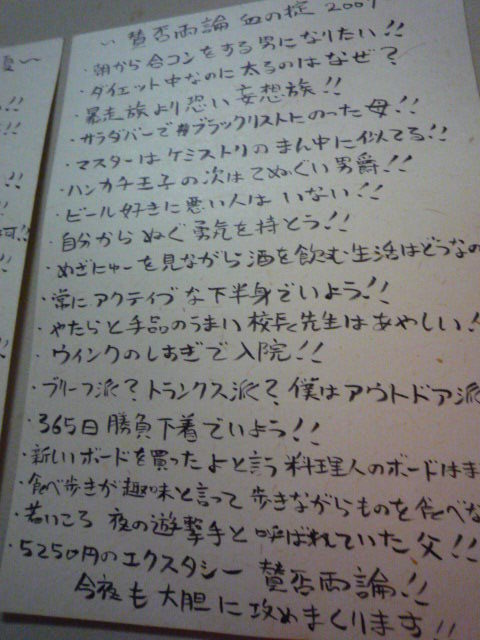 ～賛否両論 血の掟 2007
・朝から合コンをする男になりたい!!
・ダイエット中なのに太るのはなぜ?
・暴走族より恐い妄想族!!
・サラダバーでブラックリストにのった母!!
・マスターはケミストリのまん中に似てる!!
・ハンカチ王子の次はてぬぐい男爵!!
・ビール好きに悪い人はいない!!
・自分からぬぐ勇気を持とう!!
・めざにゅーを見ながら酒を飲む生活はどうなの
・常にアクティブな下半身でいよう!!
・やたらと手品のうまい校長先生はあやしい!
・ウインクのしすぎで入院!!
・ブリーフ派?トランクス派?僕はアウトドア派
・365日勝負下着でいよう!!
・新しいボードを買ったよと言う料理人のボードはま
・食べ歩きが趣味と言って歩きながらものを食べな
・若いころ夜の遊撃手と呼ばれていた父!!
・5250円のエクスタシー 賛否両論!!
今夜も大胆に攻めまくります!!
夏～
!!
!!
!!
!!
!!